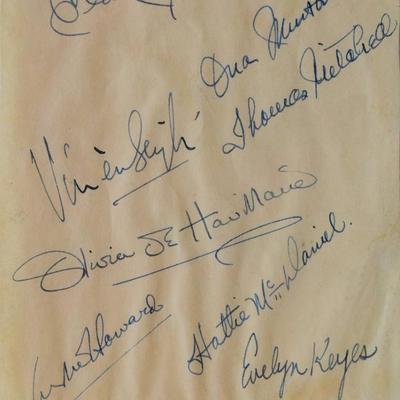 Ona Munson
Thomas Mitchell
Vivien Leigh
Olivia de Havilland
Leslie Howard
Hattie McDaniel.
Evelyn Keyes